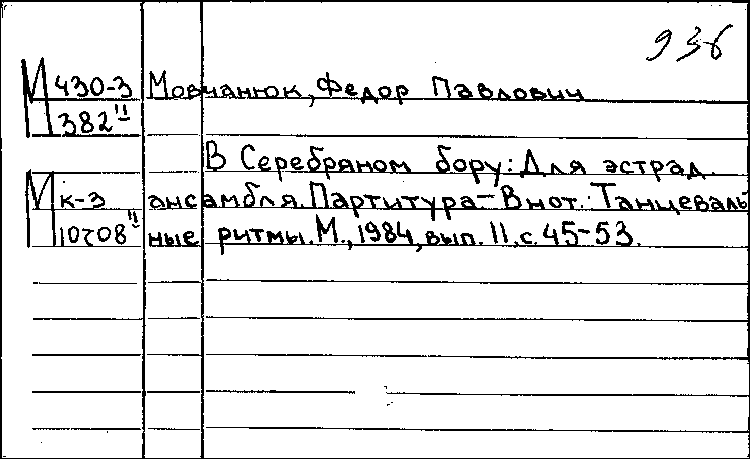 936
М 430-3 Мовчанюк, Федор Павлович
382 II
В Серебряном бору: Для эстрад.
М к-3 ансамбля. Партитура - В нот.: Танцеваль
II ные ритмы. М., 1984, вып. 11, с. 45-53.